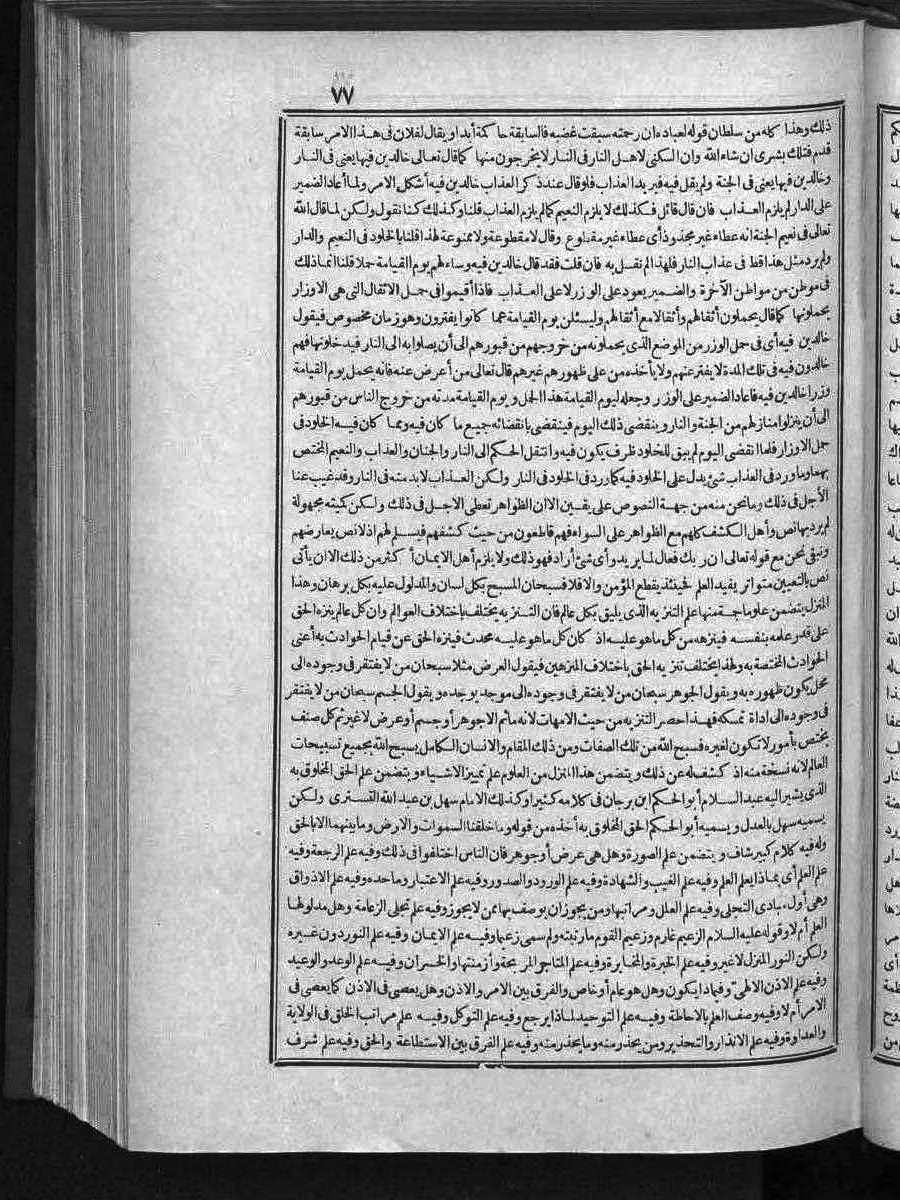 ٧٧
ذلك وهذا كله من سلطان قوله لعباده ان رحمته سبقت غضبه فالسابقة حاكمة أبدا ويقال لفلان فى هذا الامر سابقة
قدم فتلك بشرى ان شاء الله وان السكنى لاهل النار فى النار لا يخرجون منها كما قال تعالى خالدين فيها يعنى فى النار
وخالدين فيها يعنى فى الجنة ولم يقل فيه فيريد العذاب فلو قال عند ذكر العذاب خالدين فيه أشكل الامر ولما أعاد الضمير
على الدار لم يلزم العذاب فان قال قائل فكذلك لا يلزم النعيم كما لم يلزم العذاب قلنا وكذلك كنا نقول ولكن لما قال الله
تعالى فى نعيم الجنة انه عطاء غير مجذوذ أى عطاء غير مقطوع وقال لا مقطوعة ولا ممنوعة لهذا قلنا بالخلود فى النعيم والدار
ولم يرد مثل هذا قط فى عذاب النار فلهذا لم نقل به فان قلت فقد قال خالدين فيه وساء لهم يوم القيامة حملا قلنا انما ذلك
فى موطن من مواطن الآخرة والضمير يعود على الوزر لا على العذاب فاذا أقيموا فى حمل الاثقال التى هى الاوزار
يحملونها كما قال يحملون أثقالهم وأثقالا مع أثقالهم وليسئلن يوم القيامة عما كانوا يفترون وهو زمان مخصوص فيقول
خالدين فيه أى فى حمل الوزر من الموضع الذى يحملونه من خروجهم من قبورهم الى أن يصلوا به الى النار فيدخلونها فهم
خالدون فيه فى تلك المدة لا يفتر عنهم ولا يأخذه من على ظهورهم غيرهم قال تعالى من أعرض عنه فانه يحمل يوم القيامة
وزرا خالدين فيه فاعاد الضمير على الوزر وجعله ليوم القيامة هذا الحل ويوم القيامة مدته من خروج الناس من قبورهم
الى أن ينزلوا منازلهم من الجنة والنار وينقضى ذلك اليوم فينقضى بانقضائه جميع ما كان فيه ومما كان فيه الخلود فى
حمل الاوزار فلما انقضى اليوم لم يبق للخلود ظرف يكون فيه وانتقل الحكم الى النار والجنان والعذاب والنعيم المختص
بهما وما ورد فى العذاب شئ يدل على الخلود فيه كما ورد فى الخلود فى النار ولكن العذاب لا بد منه فى النار وقد غيب عنا
الأجل فى ذلك وما نحن منه من جهة النصوص على يقين الا ان الظواهر تعطى الاجل فى ذلك ولكن كميته مجهولة
لم يرد بها نص وأهل الكشف كلهم مع الظواهر على السواء فهم قاطعون من حيث كشفهم فيسلم لهم اذ لا نص يعارضهم
ونبقى نحن مع قوله تعالى ان ربك فعال لما يريد وأى شئ أراد فهو ذلك ولا يلزم أهل الايمان أكثر من ذلك الا ان يأتى
نص بالتعيين متواتر يفيد العلم فحينئذ يقطع المؤمن والا فلا فسبحان المسبح بكل لسان والمدلول عليه بكل برهان وهذا
المنزل يتضمن علوما جمة منها علم التنزيه الذى يليق بكل عالم فان التنزيه يختلف باختلاف العوالم وان كل عالم ينزه الحق
على قدر علمه بنفسه فينزهه من كل ما هو عليه اذ كان كل ما هو عليه محدث فينزه الحق عن قيام الحوادث به أعنى
الحوادث المختصة به ولهذا يختلف تنزيه الحق باختلاف المنزهين فيقول العرض مثلا سبحان من لا يفتقر فى وجوده الى
محل يكون ظهوره به ويقول الجوهر سبحان من لا يفتقر فى وجوده الى موجد يوجده ويقول الجسم سبحان من لا يفتقر
فى وجوده الى اداة تمسكه فهذا حصر التنزيه من حيث الامهات لانه ما ثم الا جوهر أو جسم أو عرض لا غير ثم كل صنف
يختص بأمور لا تكون لغيره فسبح الله من تلك الصفات ومن ذلك المقام والانسان الكامل يسبح الله بجميع تسبيحات
العالم لانه نسخة منه اذ كشف له عن ذلك ويتضمن هذا المنزل من العلوم علم تمييز الاشياء ويتضمن علم الحق المخلوق به
الذى يشير اليه عبد السلام أبو الحكم ابن برجان فى كلامه كثيرا وكذلك الامام سهل بن عبد الله التسترى ولكن
يسميه سهل بالعدل ويسميه أبو الحكم الحق المخلوق به أخذه من قوله وما خلقنا السموات والارض وما بينهما الا بالحق
وله فيه كلام كبير شاف ويتضمن علم الصورة وهل هى عرض أو جوهر فان الناس اختلفوا فى ذلك وفيه علم الرجعة وفيه
علم العلم أى بماذا يعلم العلم وفيه علم الغيب والشهادة وفيه علم الورود والصدور وفيه علم الاعتبار وما حده وفيه علم الاذواق
وهى أول مبادى التجلى وفيه علم العلل ومراتبها ومن يجوز ان يوصف بها ممن لا يجوز وفيه علم تجلى الزعامة وهل مدلولها
العلم أم لا وقوله عليه السلام الزعيم غارم وزعيم القوم ما رتبته ولم سمى زعيما وفيه علم الايمان وفيه علم النور دون غيره
ولكن النور المنزل لا غير وفيه علم الخبرة والمخابرة وفيه علم المتاجر المربحة وأزمنتها والخسران وفيه علم الوعد والوعيد
وفيه علم الاذن الالهى وفيماذا يكون وهل هو عام أو خاص والفرق بين الامر والاذن وهل يعصى فى الاذن كما يعصى فى
الامر أم لا وفيه وصف العلم بالاحاطة وفيه علم التوحيد لماذا يرجع وفيه علم التوكل وفيه علم مراتب الخلق فى الولاية
والعداوة وفيه علم الانذار والتحذير ومن يحذر منه وما يحذر منه وفيه علم الفرق بين الاستطاعة والحق وفيه علم شرف